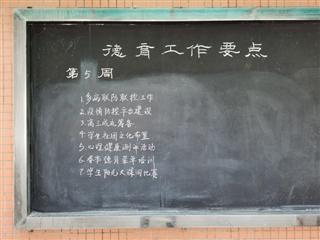 德育工作要点
第5周
1.多病联防联控工作
2.疫情防控平台建设
3.高三成人筹备
4.学生社团文化布置
5.心理健康测评活动
6.春季德育菜单培训
7.学生阳光大课间比赛